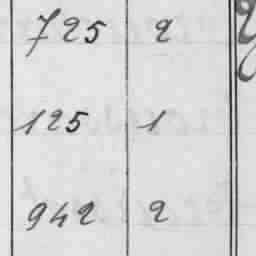 725 2
125 1
942 2